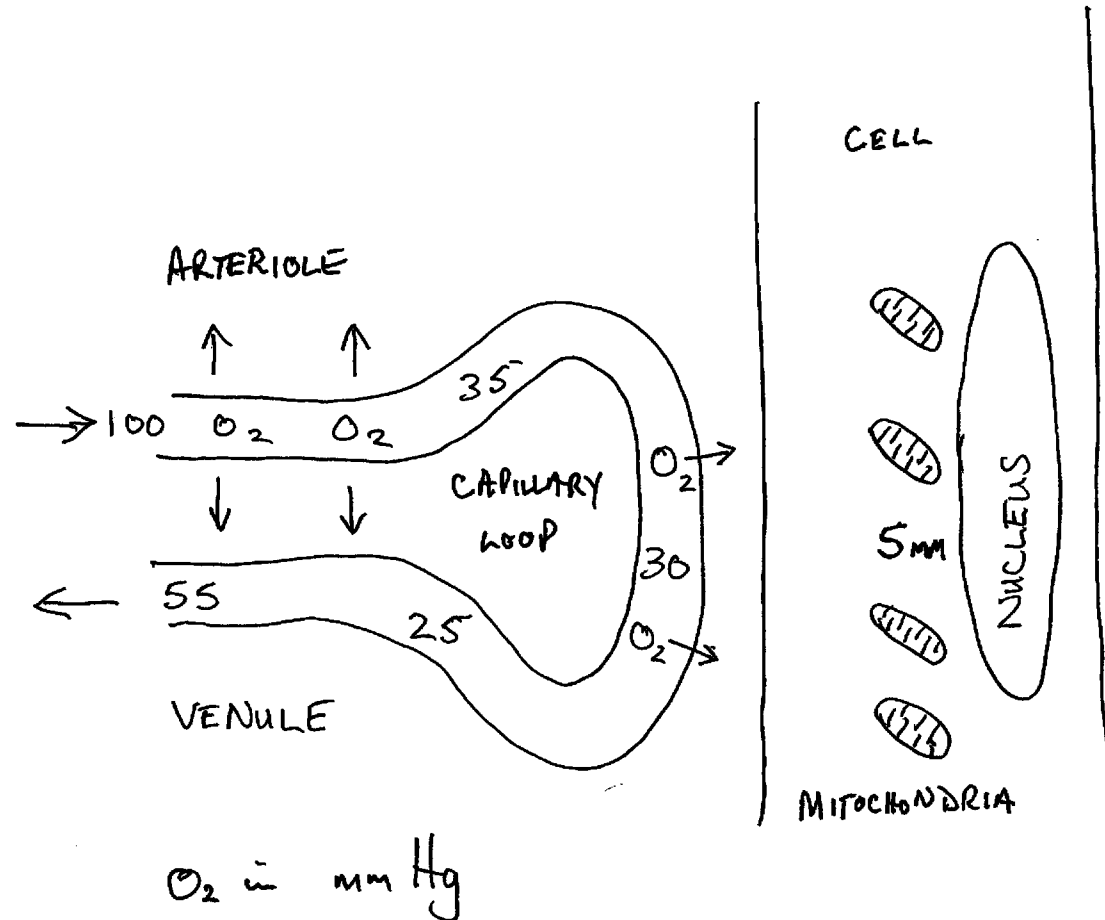 CELL
ARTERIOLE
→100 O2 O2
35
CAPILLARY
LOOP
O2
30
O2
55
25
VENULE
5mm
NUCLEUS
MITOCHONDRIA
O2 in mm Hg